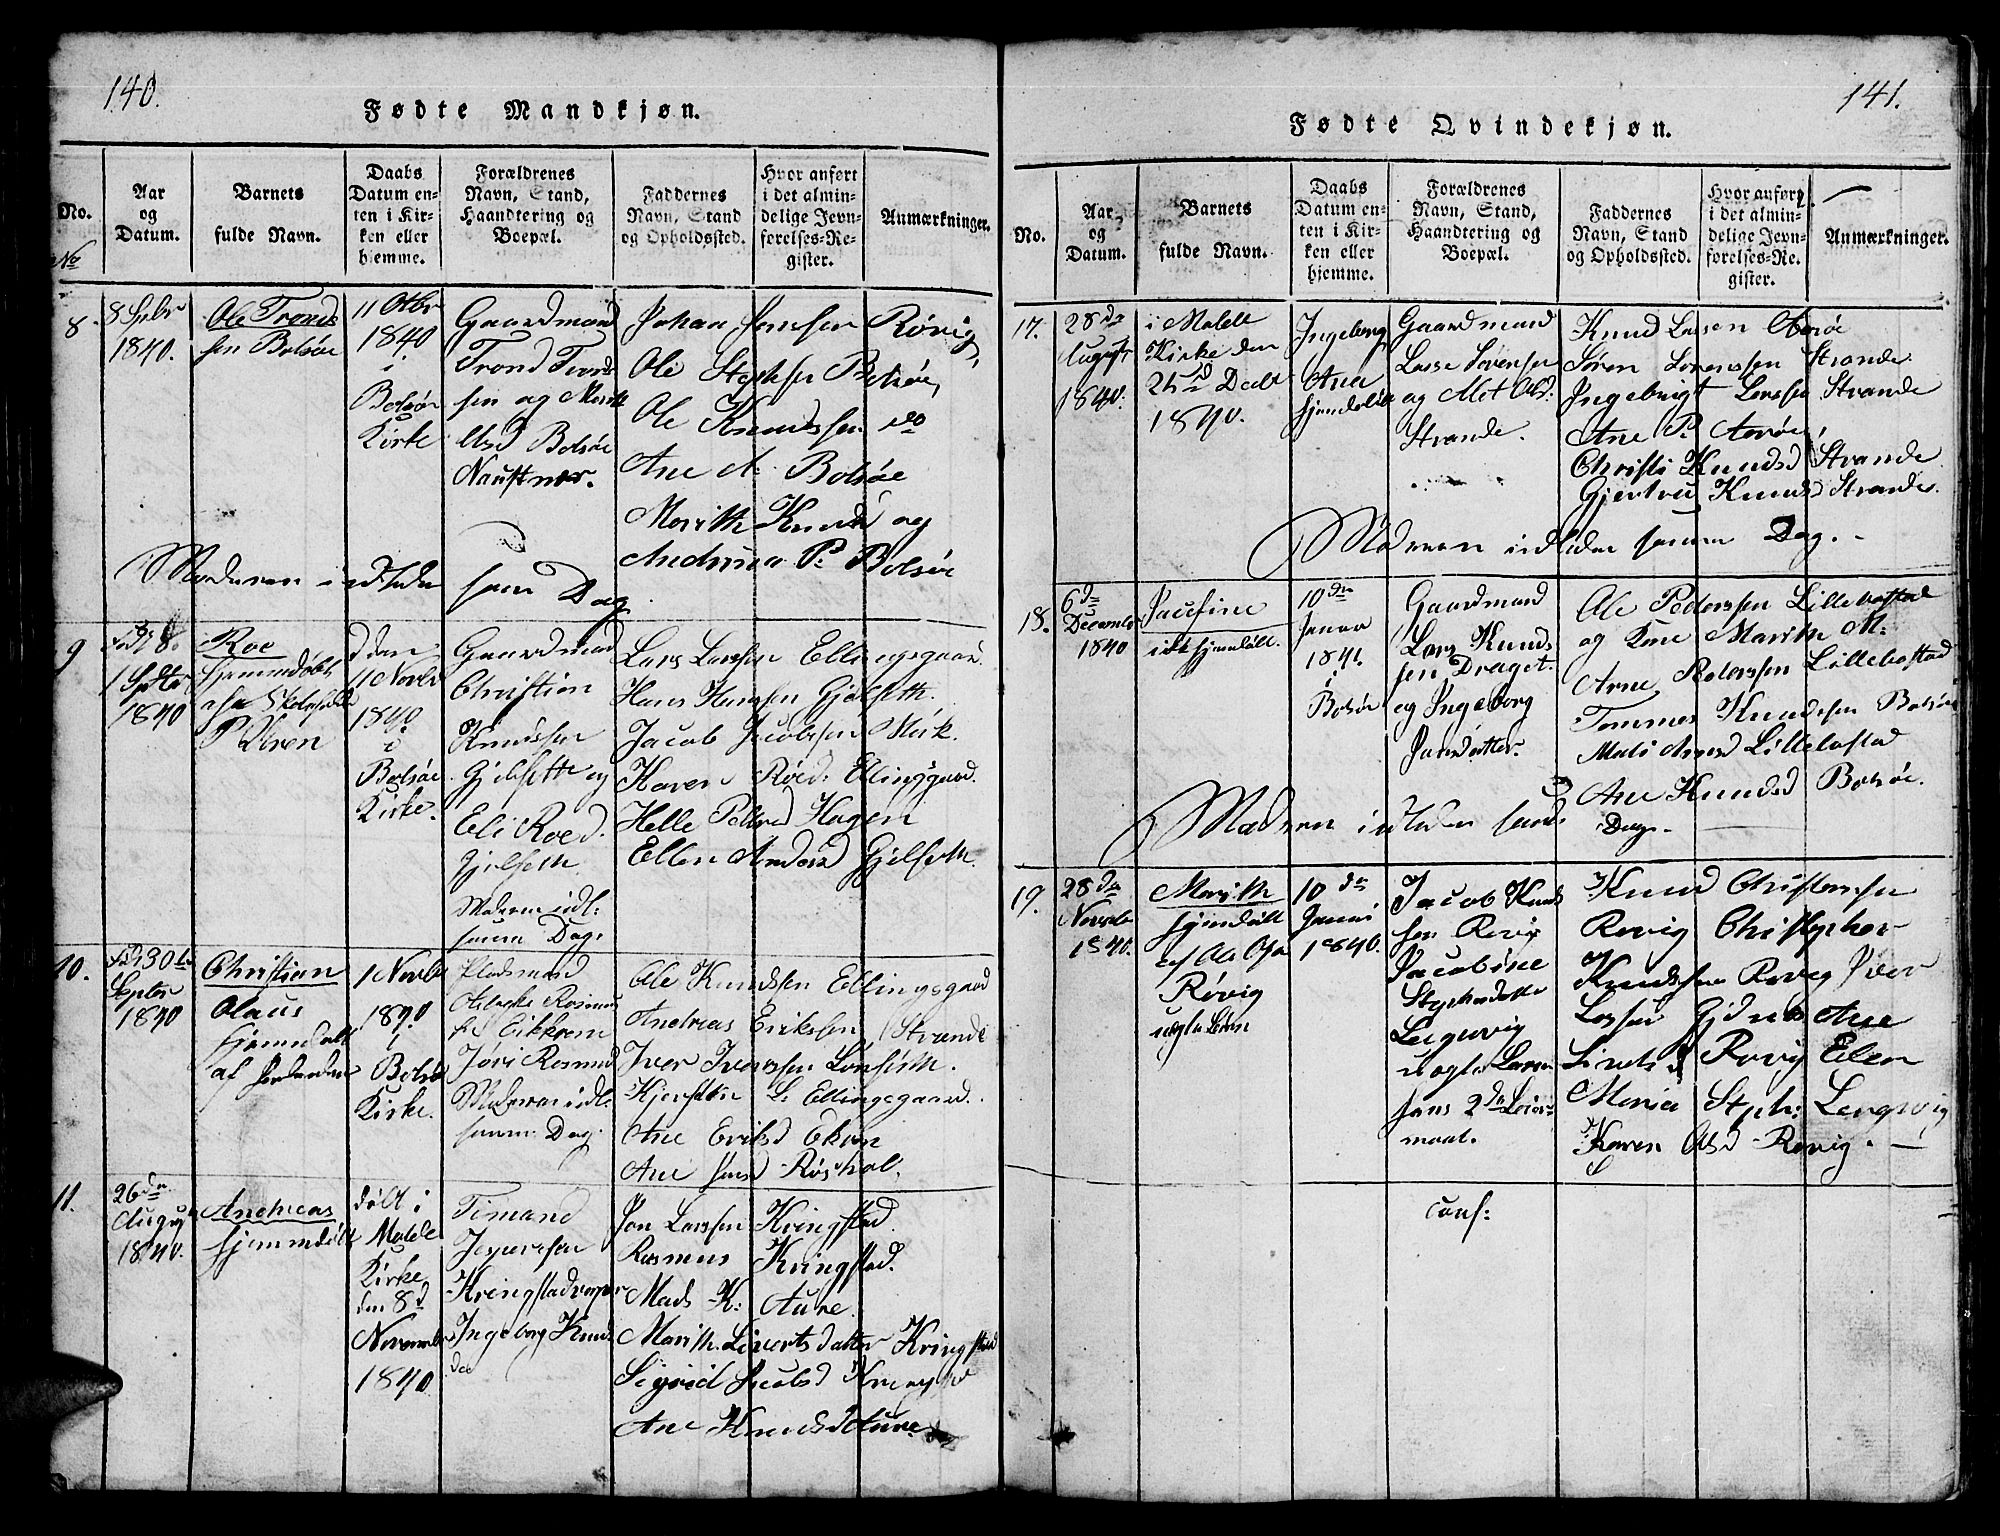 140.
Fødte Mandkjøn.
No.
Aar
og
Datum.
Barnets
fulde Navn.
Daabs
Datum en-
ten i Kir-
ken eller
hjemme.
Forældrenes
Navn, Stand,
Haandtering og
Boepæl.
Faddernes
Navn, Stand
og Opholdssted.
Hvor anført
i det almin-
delige Jevn-
førelses-Re-
gister.
Anmærkninger.
No
8
8 Spbr
1840.
Ole Trond
sen Bolsøe
11 Otbr
1840
i
Bolsøe
Kirke
Gaardmand
Trond Trond
sen og Marith
Olsd Bolsøe
Naustnær.
Johan Jensen Røvig,
Ole Stephsen Bolsøe,
Ole Knudssen do
Ane A. Bolsøe
Marith Knudsd og
Andrina P. Bolsøe
Moderen indleder samme Dag
9
1 Sptbr
1840
Roe
hjemmedøbt
af Skoleh
P. Olsen
d den
11 Novbr
1840
i
Bolsøe
Kirke.
Gaardmand
Christian
Knudssen
Gjelseth og
Eli Roed.
Gjelseth
Moderen indl:
samme Dag.
Lars Larssen Ellingsgaard.
Hans Hanssen Gjelseth.
Jacob Jacobssen Mæk.
Karen Roed: Ellingsgaard.
Helle Pedersd Hagen
Ellen Andersd Gjelseth.
10.
30te
Septbr
1840
Christian
Olaus
hjemmedøbt
af
1 Novbr
1840
i
Bolsøe
Kirke.
Pladsmand
Rasmus
Eikrem
Jøri Rasmusd
Moderen indl:
samme Dag.
Ole Knudssen Ellingsgaard
Andreas Erikssen Strande
Iver Iverssen Lønseth.
Kjersten L. Ellingsgaard.
Ane Eriksd Ekren
Ane Røshol.
11.
26de
August
1840.
Andreas
hjemmedøbt
døbt i
Molde
Kirke
den 8d
November
1840
Timand
Jesperssen
Kringstad
Ingeborg Knuds
dat
Jon Larssen Kringstad
Rasmus Kringstad.
Mads K: Aure.
Marith Sivertsdatter Kringstad
Sigrid Jacobsd Kringstad
Ane Knudsd Aure
141.
Fødte Qvindekjøn.
No.
Aar
og
Datum.
Barnets
fulde Navn.
Daabs
Datum en-
ten i Kir-
ken eller
hjemme.
Forældrenes
Navn, Stand,
Haandtering og
Boepæl.
Faddernes
Navn, Stand
og Opholdssted.
Hvor anført
i det almin-
delige Jevn-
førelses-Re-
gister.
Anmærkninger.
17.
28de
August
1840.
i Molde
Kirke den
25d Octbr
1840.
Ingeborg
Ana
hjemdøbt
Gaardmand
Lasse Sørensen
og Met Olsd:
Strande.
Knud Larsen Aarøe
Søren Sørenssen Strande
Ingebrigt Larssen Strande
Ane P. Aarøe,
Christi Knudsd Strande
Gjertru Knudsd Strande.
Moderen indleder samme Dag.
18.
6de
December
1840
Jacosine
ikke hjemdøbt.
10de
Januar
1841.
i
Bolsøe
Gaardmand
Lars Knuds
sen Draget
og Ingeborg
Jonsdatter.
Ole Pederssen Lillebostad
og Kone Marith M:
Arne Pederssen Lillebostad
Tommes Knudssen Bolsøe
Mali Arnesd Lillebostad
Ane Knudsd Bolsøe.
Moderen indleder samme
Dag.
19.
28de
Novbr
1840.
Marith
hjemdøbt
af Ole
Røvig
uægte Barn
10de
Januar
1840.
Jacob Knuds
sen Røvig
Jacobine
Stephendatter
Lengvig
uægte
hans 2de Leier
maal.
Knud Christenssen
Røvig Christopher
Knudssen Røvig Iver
Larssen Gjdnes Ane
Sivertsd Røvig Elen
Maria Steph: Lengvig
Karen Olsd Røvig.
conf: